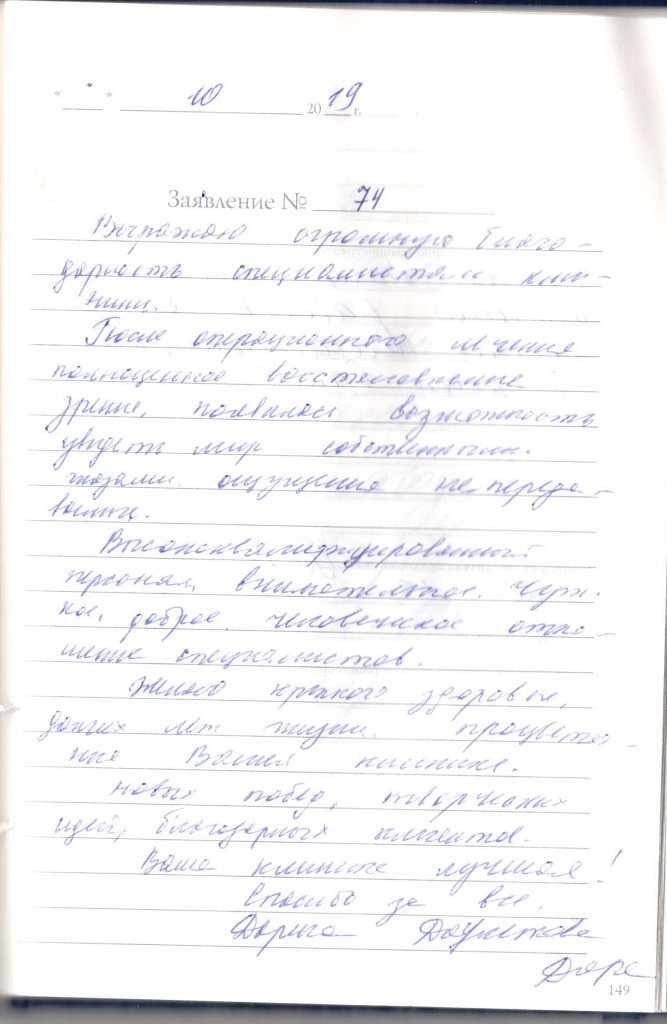 « » 10 2019 г.
Заявление № 74
Выражаю огромную благо-
дарность специалистам кли-
ники.
После операционного лечения
полноценное восстановление
зрение, появилась возможность
увидеть мир собственными
глазами. ощущение не переда-
ваемы.
Высококвалифицированный
персонал, внимательное. чут-
кое, доброе, человеческое отно-
шение специалистов.
Желаю крепкого здоровье,
долгих лет жизни. процвета-
ние Вашей клинике.
новых побед, творческих
идей, благодарных клиентов.
Ваша клиника лучшая!
Спасибо за все.
Дорига
149